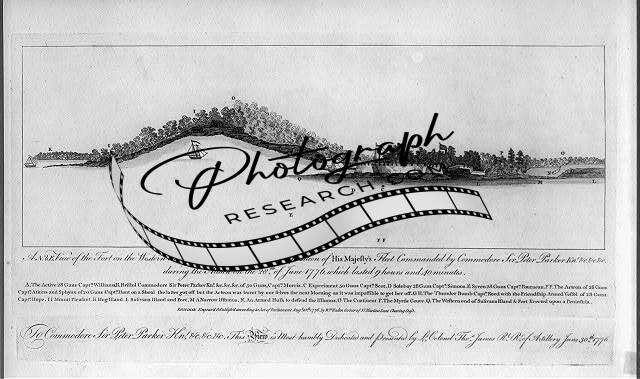 Photograph
RESEARCH.COM
A N.b.E. View of the Fort on the Western of His Majesty's Fleet Commanded by Commodore Sir Peter Parker Knt. &c. &c. &c.
during the of June 1776, which lasted 9 hours and 40 minutes.
A, The Active 28 Guns Capt. Williams. B, Bristol Commodore Sir Peter Parker Knt. &c. &c. &c. of 50 Guns, Capt. Morris. C Experiment 50 Guns Capt. Scott, D, Solebay 28 Guns Capt. Simons. E Syren 28 Guns Capt. Furneaux. FF. The Acteon of 28 Guns
Capt. Atkins and Sphynx of 20 Guns Capt. Hunt on a Shoal the latter got off but the Acteon was burnt by our selves the next Morning as it was impossible to get her off. G H. The Thunder Bomb Capt. Reed with the Friendship Armed Vessel of 28 Guns
Capt. Hope. I Mount Pleasant. K Hog Island. L Sulivans Island and Fort, M A Narrow Isthmus. N, An Armed Hulk to defend the Isthmus. O The Continent P. The Myrtle Grove. Q. The Western end of Sulivans Island & Fort Erected upon a Peninsula.
LONDON. Engraved & Publish'd according to Act of Parliament Aug. 10th 1776 by Wm. Faden Corner of St. Martins Lane Charing Cross.
To Commodore Sir Peter Parker Knt. &c. &c. &c. This View is Most humbly Dedicated and Presented by Lt. Colonel Thos. James Rl. Rt. of Artillery June 30th 1776